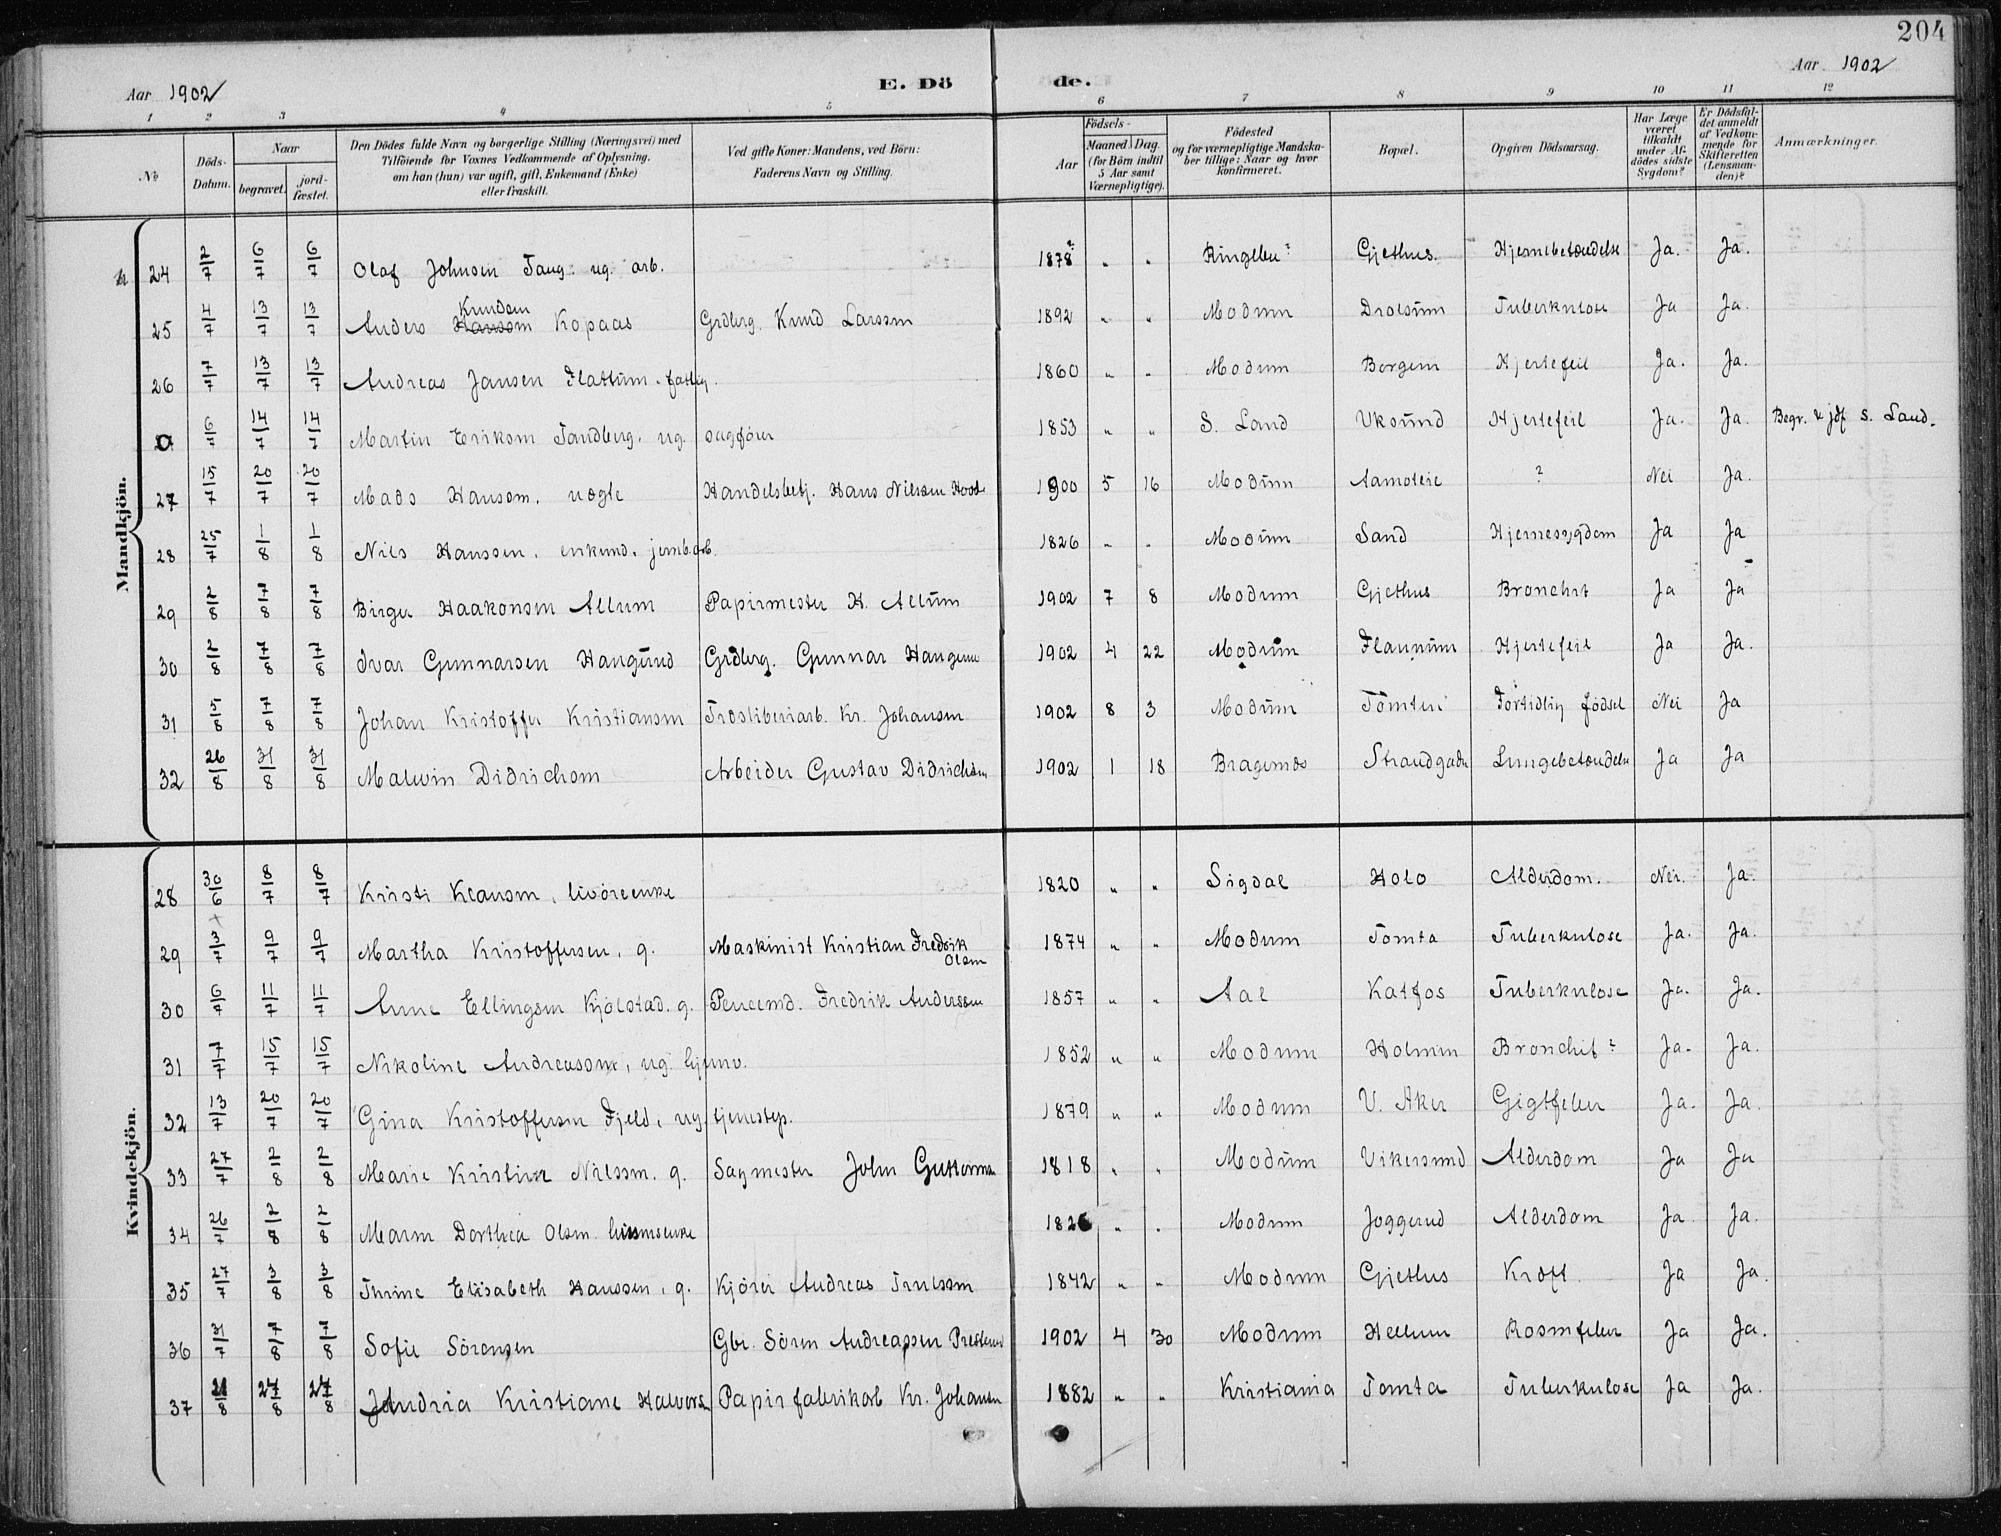 204
Aar 1902 E. Dö de. Aar 1902
1 2 3 4 5 6 7 8 9 10 11 12
№ Döds-Datum. Naar begravet. jord-fæstet. Den Dödes fulde Navn og borgerlige Stilling (Næringsvei) med Tilföiende for Voxnes Vedkommende af Oplysning, om han (hun) var ugift, gift, Enkemand (Enke) eller fraskilt. Ved gifte Koner: Mandens, ved Börn: Faderens Navn og Stilling. Födsels- Aar Maaned Dag. (for Börn indtil 5 Aar samt Værnepligtige). Födested og for værnepligtige Mandska-ber tillige: Naar og hvor konfirmeret. Bopæl. Opgiven Dödsaarsag. Har Læge været tilkaldt under Af-dödes sidste Sygdom? Er Dödsfal-det anmeldt af Vedkom-mende for Skifteretten (Lensman-den)? Anmærkninger.
Mandkjön.
24 2/7 6/7 6/7 Olaf Johnsen Tang. ug. arb. 1878? " " Ringebu? Gjethus. Hjernebetændelse Ja. Ja.
25 4/7 13/7 13/7 Anders Hansen Knudsen Kopaas Grdbrg. Knud Larssen 1892 " " Modum Drolsum Tuberkulose Ja Ja.
26 7/7 13/7 13/7 Andreas Jansen Flattum. fattig. 1860 " " Modum Borgen Hjertefeil Ja. Ja.
0 6/7 14/7 14/7 Martin Eriksen Sandberg. ug. sagfører 1853 " " S. Land Vksund Hjertefeil Ja. Ja. Begr. & jdf. S. Land.
27 15/7 20/7 20/7 Mads Hansen. uægte Handelsbetj. Hans Nilsen 1900 5 16 Modum Aamoteie ? Nei Ja.
28 25/7 1/8 1/8 Nils Hanssen. enkemd. jernb.arb. 1826 " " Modum Sand Hjernesygdom Ja Ja
29 2/8 7/8 7/8 Birger Haakonsen Allum Papirmester H. Allum 1902 7 8 Modum Gjethus Bronchit Ja Ja
30 2/8 7/8 7/8 Ivar Gunnarsen Haugund Grdbrg. Gunnar 1902 4 22 Modum Hjertefeil Ja Ja.
31 5/8 7/8 7/8 Johan Kristoffer Kristiansen Træsliberiarb. Kr. Johansen 1902 8 3 Modum Tømten Fortidlig fødsel Nei Ja
32 26/8 31/8 31/8 Malwin Didrichsen Arbeider Gustav Didrichsen 1902 1 18 Bragernæs Strandgaden Lungebetændelse Ja Ja
Kvindekjön.
28 30/6 8/7 8/7 Kristi Klausen, livøreenke 1820 " " Sigdal Holo Alderdom. Nei. Ja.
29 3/7 9/7 9/7 Martha Kristoffersen, g. Maskinist Kristian Fredrik Olsen 1874 " " Modum Tomta Tuberkulose Ja. Ja.
30 6/7 11/7 11/7 Anne Ellingsen Kjølstad. g. Fredrik Anderssen 1857 " " Aal Katfos Tuberkulose Ja. Ja.
31 7/7 15/7 15/7 Nikoline Andreasen, ug. 1852 " " Modum Holmen Bronchit? Ja. Ja.
32 13/7 20/7 20/7 Gina Kristoffersen Fjeld, ug. tjenestep. 1879 " " Modum V. Aker Gigtfeber Ja. Ja.
33 27/7 2/8 2/8 Marie Kristine Nilssen. g. Sagmester John Gutterman 1818 " " Modum Vikersund Alderdom Ja Ja
34 26/7 2/8 2/8 Maren Dorthea Olsen. 1826 " " Modum Joggerud Alderdom Ja Ja.
35 27/7 3/8 3/8 Thrine Elisabeth Hanssen, g. Kjører Andreas Trulssen 1842 " " Modum Gjethus Kræft. Ja Ja.
36 31/7 7/8 7/8 Sofie Sörensen Gbr. Sören Andreassen Presterud 1902 4 30 Modum Hellum Rosenfeber Ja Ja.
37 21/8 27/8 27/8 Andria Kristiane Halvorsen Papirfabrikarb Kr. Johansen 1882 " " Kristiania Tomta Tuberkulose Ja Ja.